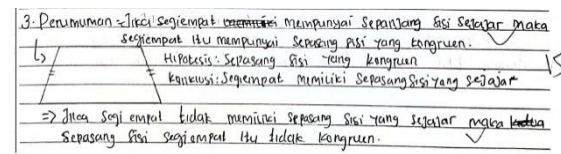 3. Perumuman = Jika segiempat mempunyai sepanjang sisi sejajar maka
segiempat itu mempunyai sepasang sisi yang kongruen.
Hipotesis: sepasang sisi yang kongruen
Konklusi: segiempat memiliki sepasang sisi yang sejajar
=> Jika segi empat tidak memiliki sepasang sisi yang sejajar maka
sepasang sisi segiempat itu tidak kongruen.